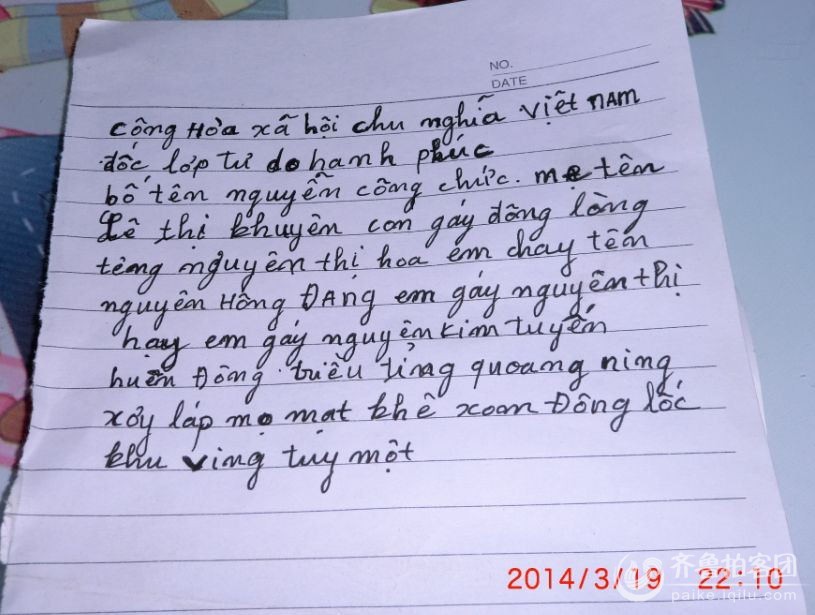 NO.
DATE
công Hòa xã hội chu nghĩa việt nAM
dốc lớp tư do hanh phúc
bố tên nguyễn công chức. mẹ tên
Lê thị khuyên con gáy dông lòng
tèng nguyên thị hoa em chay tên
nguyên Hồng ĐAng em gáy nguyên thị
hạy em gáy nguyên kim tuyến
huến Đông triều tỉng quoang ning
xớy láp mo mạt khê xoan Đông lốc
khu ving tuy một
2014/3/19 22:10
齐鲁拍客团
paike.iqilu.com